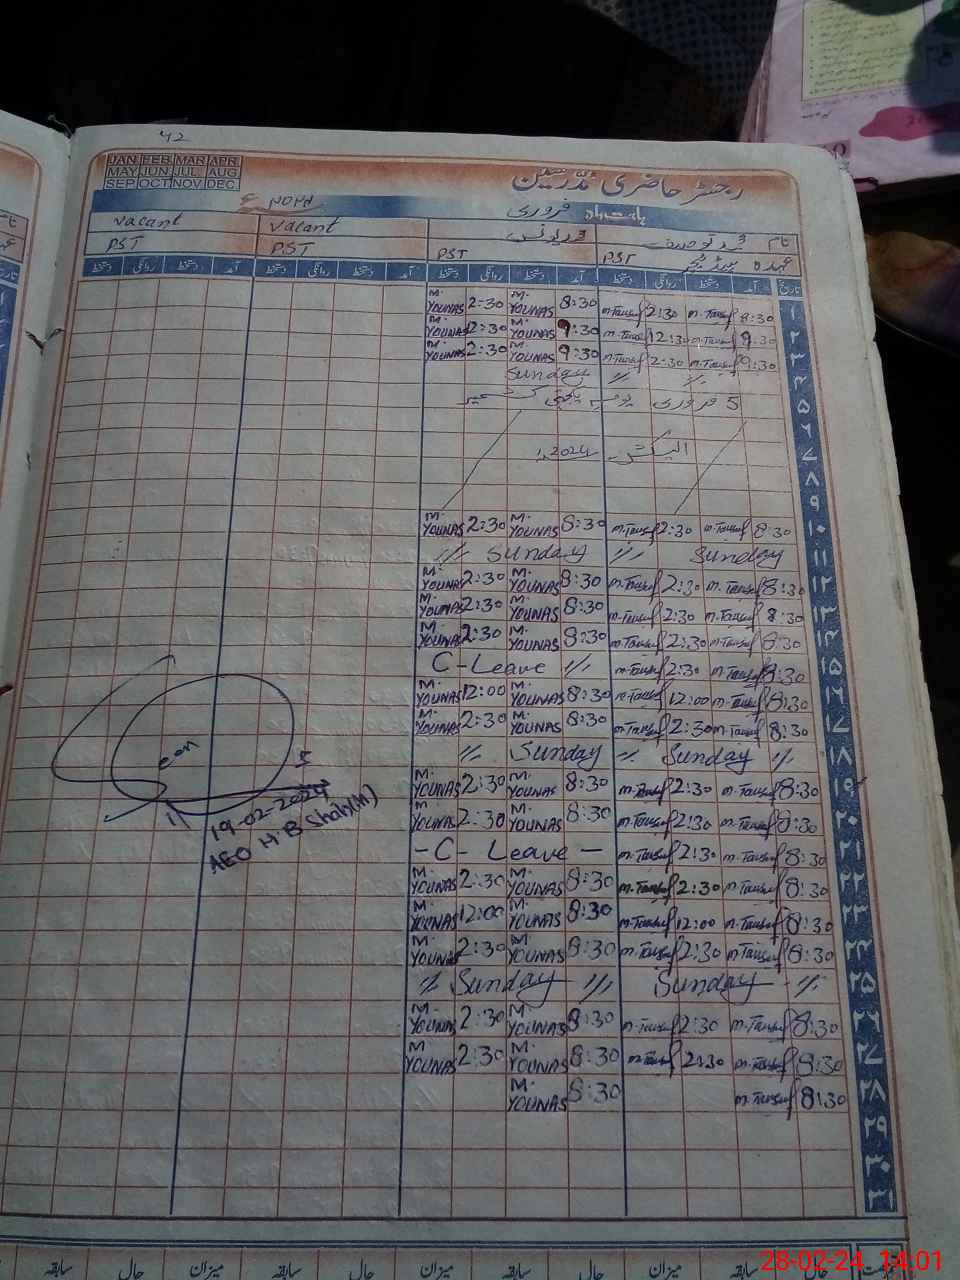 42
JAN FEB MAR APR
MAY JUN JUL AUG
SEP OCT NOV DEC
رجسٹر حاضری مدرسین
بابت ماہ فروری ۲۰۲۴ء
نام محمد توصیف محمد یونس Vacant Vacant
عہدہ PST PST PST PST
تاریخ آمد دستخط روانگی دستخط آمد دستخط روانگی دستخط آمد دستخط روانگی دستخط آمد دستخط روانگی دستخط
۱ M. YOUNAS 2:30 M. YOUNAS 8:30 M.Tausef 2:30 M.Tausef 8:30
۲ M. YOUNAS 2:30 M. YOUNAS 9:30 M.Tausef 12:30 M.Tausef 9:30
۳ M. YOUNAS 2:30 M. YOUNAS 9:30 M.Tausef 2:30 M.Tausef 9:30
۴ Sunday // //
۵ 5 فروری یوم یکجہتی کشمیر
۶
۷ الیکشن 2024ء
۸
۹
۱۰ M. YOUNAS 2:30 M. YOUNAS 8:30 M.Tausef 2:30 M.Tausef 8:30
۱۱ // Sunday // Sunday
۱۲ M. YOUNAS 2:30 M. YOUNAS 8:30 M.Tausef 2:30 M.Tausef 8:30
۱۳ M. YOUNAS 2:30 M. YOUNAS 8:30 M.Tausef 2:30 M.Tausef 8:30
۱۴ M. YOUNAS 2:30 M. YOUNAS 8:30 M.Tausef 2:30 M.Tausef 8:30
۱۵ C-Leave // M.Tausef 2:30 M.Tausef 8:30
۱۶ M. YOUNAS 12:00 M. YOUNAS 8:30 M.Tausef 12:00 M.Tausef 8:30
۱۷ M. YOUNAS 2:30 M. YOUNAS 8:30 M.Tausef 2:30 M.Tausef 8:30
۱۸ // Sunday // Sunday //
۱۹ M. YOUNAS 2:30 M. YOUNAS 8:30 M.Tausef 2:30 M.Tausef 8:30
۲۰ M. YOUNAS 2:30 M. YOUNAS 8:30 M.Tausef 2:30 M.Tausef 8:30
۲۱ - C - Leave - M.Tausef 2:30 M.Tausef 8:30
۲۲ M. YOUNAS 2:30 M. YOUNAS 8:30 M.Tausef 2:30 M.Tausef 8:30
۲۳ M. YOUNAS 12:00 M. YOUNAS 8:30 M.Tausef 12:00 M.Tausef 8:30
۲۴ M. YOUNAS 2:30 M. YOUNAS 8:30 M.Tausef 2:30 M.Tausef 8:30
۲۵ // Sunday // Sunday - //
۲۶ M. YOUNAS 2:30 M. YOUNAS 8:30 M.Tausef 2:30 M.Tausef 8:30
۲۷ M. YOUNAS 2:30 M. YOUNAS 8:30 M.Tausef 2:30 M.Tausef 8:30
۲۸ M. YOUNAS 8:30 M.Tausef 8:30
۲۹
۳۰
۳۱
19-02-2024
AEO H.B Shah(M)
سابقہ حال میزان سابقہ حال میزان سابقہ حال میزان سابقہ حال
28-02-24 14:01